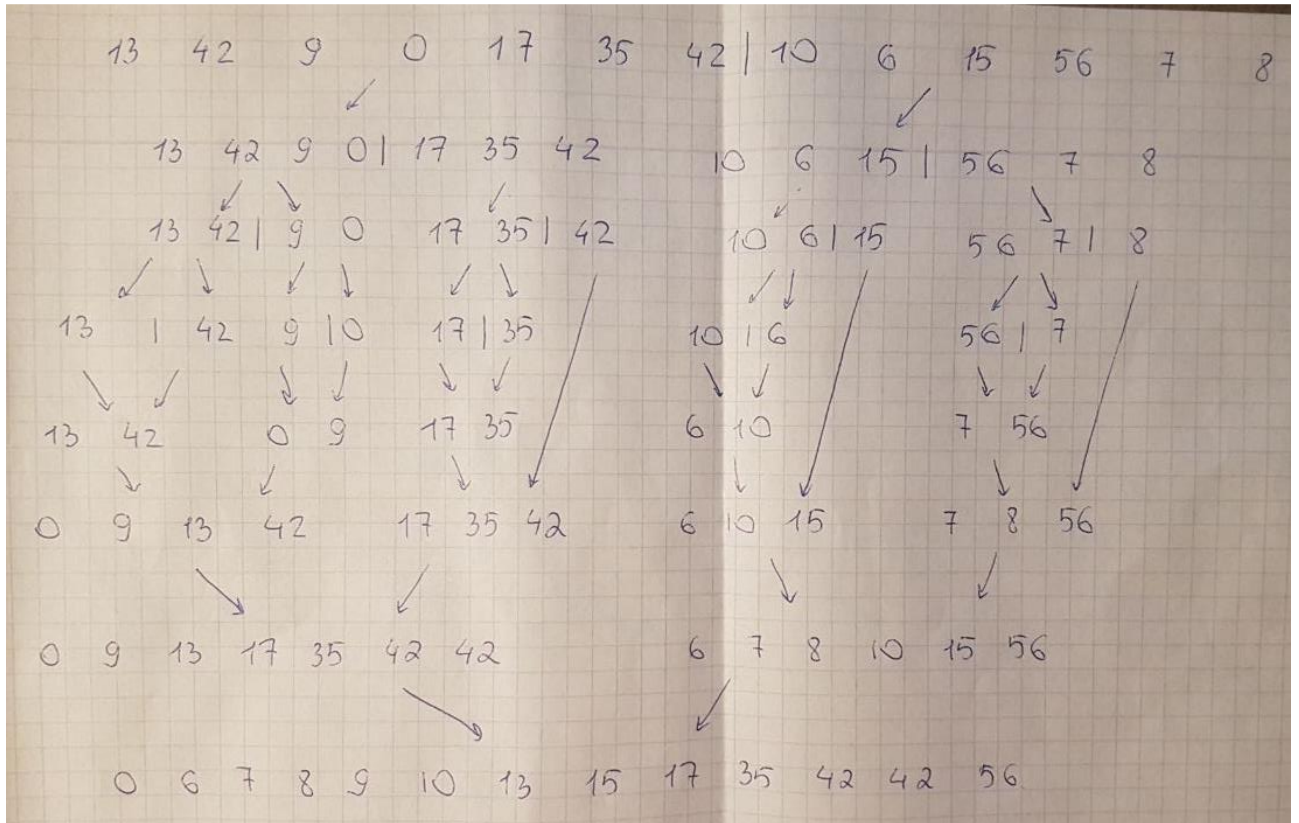 13 42 9 0 17 35 42 | 10 6 15 56 7 8
13 42 9 0 | 17 35 42 10 6 15 | 56 7 8
13 42 | 9 0 17 35 | 42 10 6 | 15 56 7 | 8
13 | 42 9 | 0 17 | 35 10 | 6 56 | 7
13 42 0 9 17 35 6 10 7 56
0 9 13 42 17 35 42 6 10 15 7 8 56
0 9 13 17 35 42 42 6 7 8 10 15 56
0 6 7 8 9 10 13 15 17 35 42 42 56